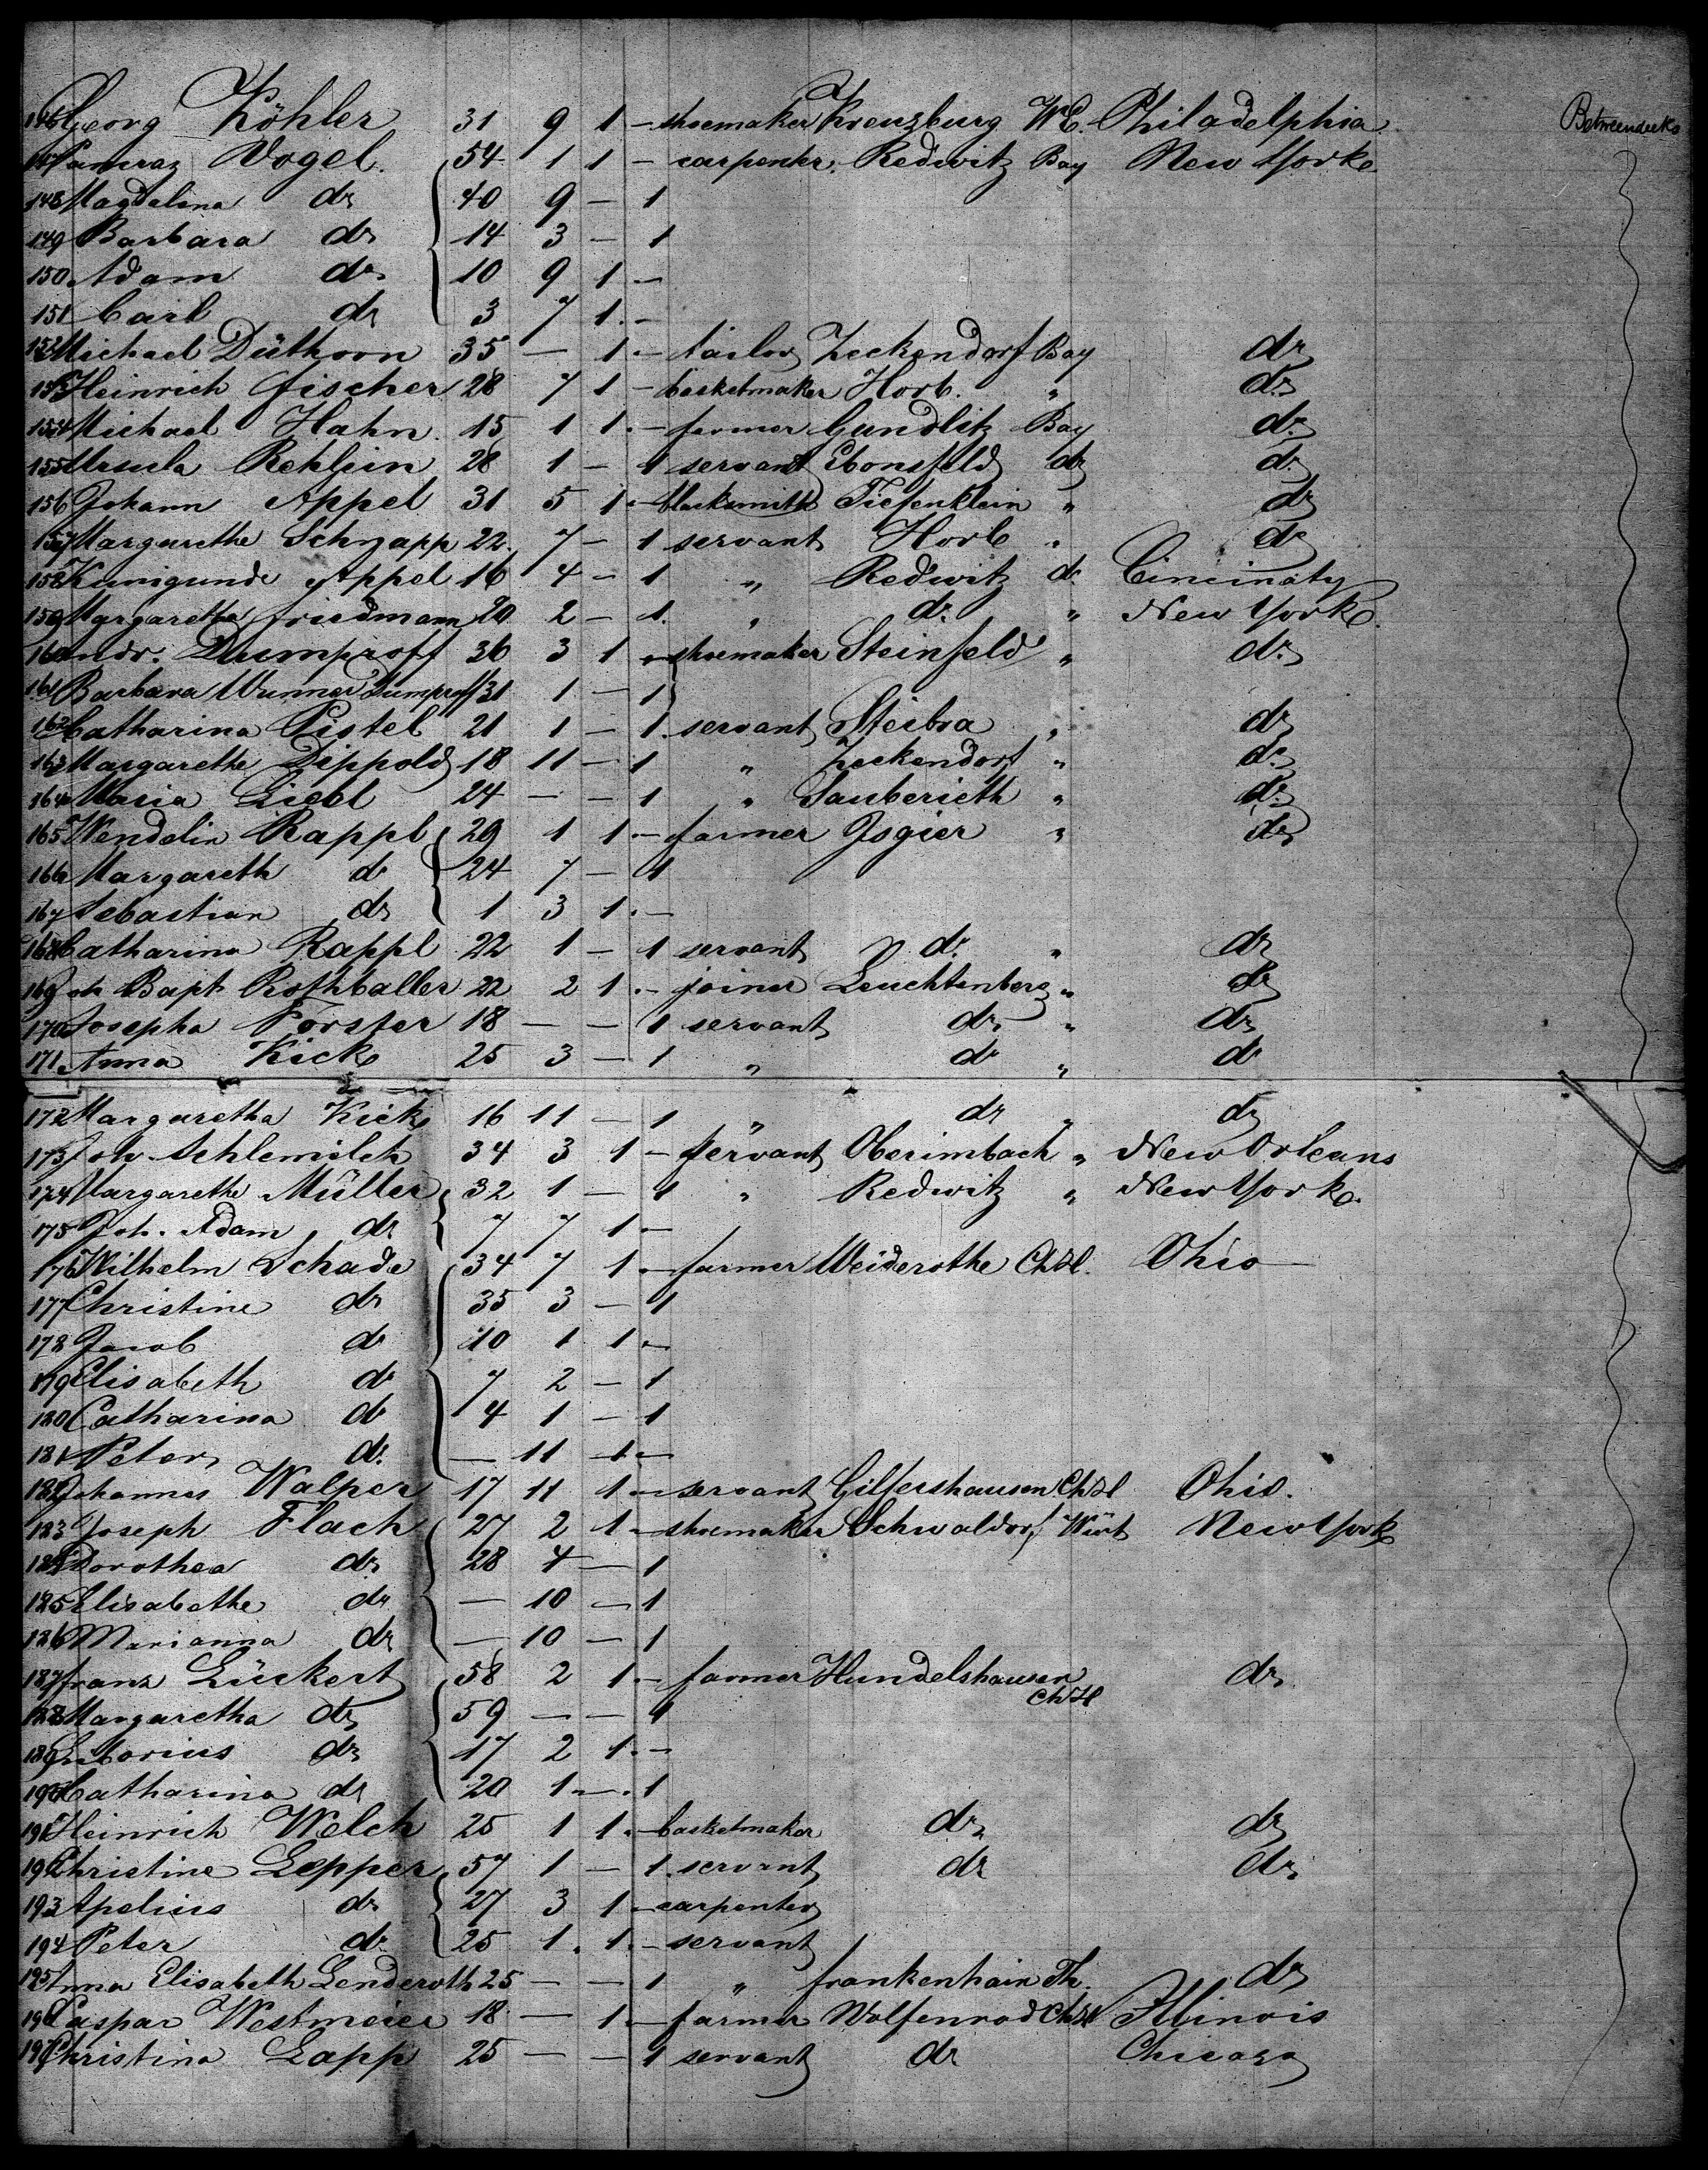 146 Georg Köhler 31 9 1 – shoemaker Kreuzburg WE. Philadelphia. Betweendecks
147 Pancraz Vogel. 54 1 1 – carpenter. Redwitz Bay New Yorke.
148 Magdalena do 40 9 – 1
149 Barbara do 14 3 – 1
150 Adam do 10 9 1 –
151 Carl do 3 7 1. –
152 Michael Düthorn 35 – 1 – tailor Zeckendorf Bay do
153 Heinrich Fischer 28 7 1 – basketmaker Horb. " do
154 Michael Hahn. 15 1 1. – farmer Gundlitz Bay do
155 Ursula Rehlein 28 1 – 1 servant Ebensfeld do do
156 Johann Appel 31 5 1 – blacksmith Tiefenklein " do
157 Margarethe Schnapp 22. 7 – 1 servant Horb " do
158 Kunigunde Appel 16 4 – 1 " Redwitz do Cincinaty
159 Margaretha Friedmann 20 2 – 1. " do " New Yorke.
160 Andr. Dumproff 36 3 1 – shoemaker Steinfeld " do
161 Barbara Wunner Dumproff 31 1 – 1
162 Catharina Pistel 21 1 – 1. servant Steibra " do
163 Margarethe Dippold 18 11 – 1 " Zeckendorf " do
164 Maria Liebl 24 – – 1 " Sauberieth " do
165 Wendelin Rappl 29 1 1 – farmer Isgier " do
166 Margareth do 24 7 – 1
167 Sebastian do 1 3 1. –
168 Catharina Rappl 22 1 – 1 servant do " do
169 Joh Bapt Rothballer 22 2 1. – joiner Leuchtenberg " do
170 Josepha Forster 18 – – 1 servant do " do
171 Anna Kick 25 3 – 1 " do " do
172 Margaretha Kick 16 11 – 1 " do " do
173 Joh. Schlemilch 34 3 1 – servant Oberimbach " New Orleans
174 Margarethe Müller 32 1 – 1 " Redwitz " New Yorke.
175 Joh. Adam do 7 7 1 –
176 Wilhelm Schade 34 7 1 – farmer Weiderothe ChH. Ohio
177 Christine do 35 3 – 1
178 Jacob do 10 1 1 –
179 Elisabeth do 7 2 – 1
180 Catharina do 4 1 – 1
181 Peter do – 11 1 –
182 Johannes Walper 17 11 1 – servant Gilfershausen ChH Ohio.
183 Joseph Flach 27 2 1 – shoemaker Schwaldorf Würt New York
184 Dorothea do 28 4 – 1
185 Elisabethe do – 10 – 1
186 Marianna do – 10 – 1
187 Franz Lückert 58 2 1. – farmer Hundelshausen do
ChH
188 Margaretha do 59 – – 1
189 Liborius do 17 2 1. –
190 Catharina do 20 1 – 1
191 Heinrich Welch 25 1 1. – basketmaker do do
192 Christine Lepper 57 1 – 1. servant do do
193 Apelius do 27 3 1 – carpenter
194 Peter do 25 1. 1. – servant
195 Anna Elisabeth Lenderoth 25 – – 1 " Frankenhain Th. do
196 Caspar Westmeier 18 – 1. – farmer Wolfenrod ChH Illinois
197 Christina Lapp 25 – – 1 servant do Chicago